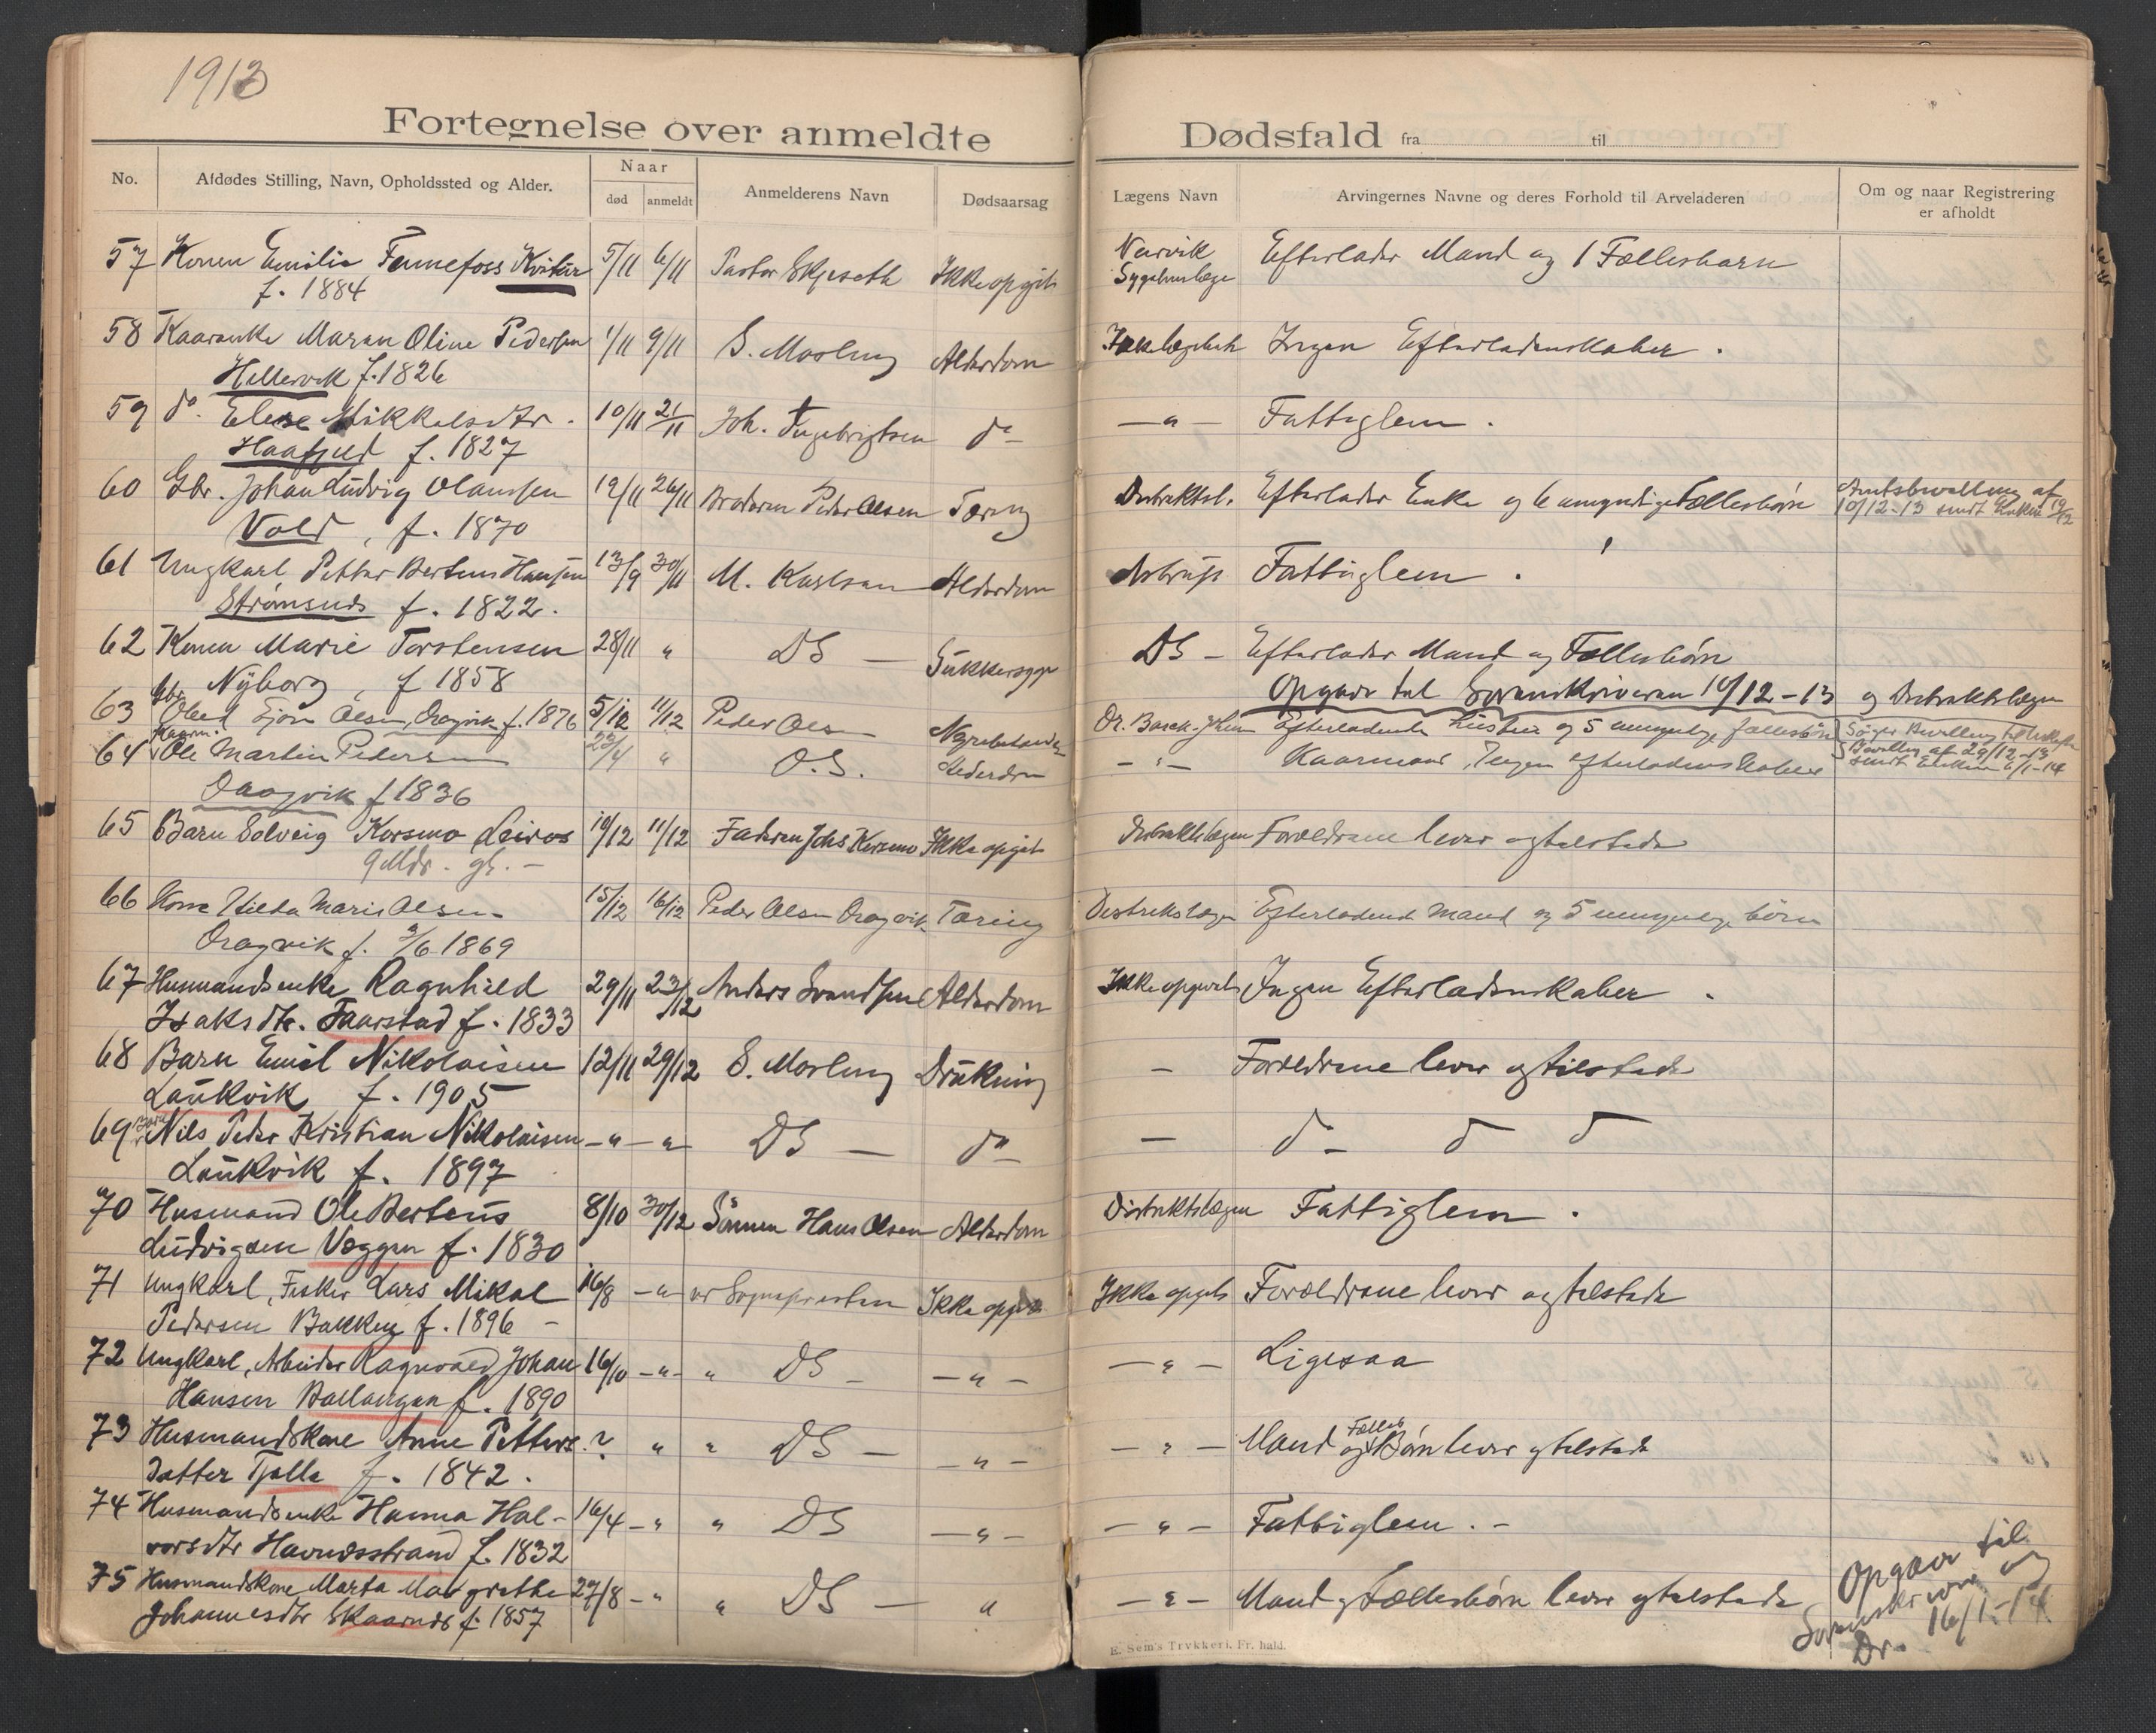 1913
Fortegnelse over anmeldte Dødsfald fra til
No. Afdødes Stilling, Navn, Opholdssted og Alder. Naar død anmeldt Anmelderens Navn Dødsaarsag Lægens Navn Arvingernes Navne og deres Forhold til Arveladeren Om og naar Registrering er afholdt
57 Konen Emilie Fennefoss Kvitur 5/11 6/11 Pastor Skjeseth Ikke opgit Narvik Efterlader Mand og 1 Fællesbarn
f. 1884 Sygehuslæge
58 Kaarenke Maren Oline Pedersen 1/11 9/11 S. Mosling Alderdom Ingen Efterladenskaber.
Hellervik f. 1826
59 do. Elese Mikkelsdtr. 10/11 21/11 Joh. Ingebrigtsen do - " - Fattiglem.
Haafjeld f. 1827
60 Gbr. Johan Ludvig Olaussen 19/11 26/11 Broderen Peder Olsen Tæring Distriktsl. Efterlader Enke og 6 umyndige Fællesbørn Amtsbevilling af
Vold, f. 1870 10/12-13 sendt Enken 19/12
61 Ungkarl Petter Berteus Hansen 13/9 30/11 M. Karlsen Alderdom Fattiglem.
Strømsnes f. 1822.
62 Konen Marie Torstensen 28/11 " DS - Sukkersyge DS - Efterlader Mand og Fællesbørn
Nyborg, f 1858 Opgave tal Sorenskriveren 10/12-13 og Distriktslægen
63 Gbr. Oluf Ejon Olsen, Dragvik f. 1876 5/12 11/12 Peder Olsen Dr. Borck-Jhlen Efterladende Hustru og 5 umyndige fællesbørn
64 Kaarm. Ole Martin Pedersen 23/4 " D.S. Alderdom - " - Kaarmand, Ingen efterladenskaber Bevilling af 29/12-13
Dragvik f 1836 sendt Enken 6/1-14
65 Barn Solveig Korsmo Leiros 10/12 11/12 Faderen Johs Korsmo Ikke opgit Distriktslægen Forældrene lever og tilstede
9 Mdr. gl. -
66 Kone Hilda Marie Olsen 15/12 16/12 Peder Olsen Dragvik Tæring Distriktslægen Efterladende Mand og 5 umyndige børn
Dragvik f. 1869
67 Husmandsenke Ragnhild 29/11 23/12 Anders Svendsen Alderdom Ikke opgivet Ingen Efterladenskaber.
Isaksdtr. Taarstad f. 1833
68 Barn Emil Nikolaisen 12/11 29/12 S. Mosling Drukning - Forældrene lever og tilstede
Laukvik f. 1905
69 Barn Nils Peder Kristian Nikolaisen - " - " - DS - do - do - do do
Laukvik f. 1897
70 Husmand Ole Berteus 8/10 30/12 Sønnen Hans Olsen Alderdom Distriktslægen Fattiglem.
Ludvigsen Væggen f. 1830
71 Ungkarl, Fisker Lars Mikal 16/8 - " - Sognepresten Ikke opgit Ikke opgit Forældrene lever og tilstede
Pedersen Bakken f. 1896 -
72 Ungkarl, Arbeider Ragnvald Johan 16/10 - " - " DS - - " - - " - Ligesaa
Hansen Ballangen f. 1890
73 Husmandskone Anne Petters ? " " DS - - " - - " - Mand og Fælles Børn lever og tilstede
datter Tjolla f. 1842.
74 Husmandsenke Hanna Hal- 16/4 - " " DS - " - - " - Fattiglem. -
vorsdtr Havnesstrand f. 1832
75 Husmandskone Marta Margrethe 27/8 - " " DS - " - " - Mand og Fællesbørn lever og tilstede
Johannesdtr Skaarnes f. 1857
Opgaver til
Sorenskriver og
Dr. 16/1-14
E. Sem's Trykkeri, Fr.hald.